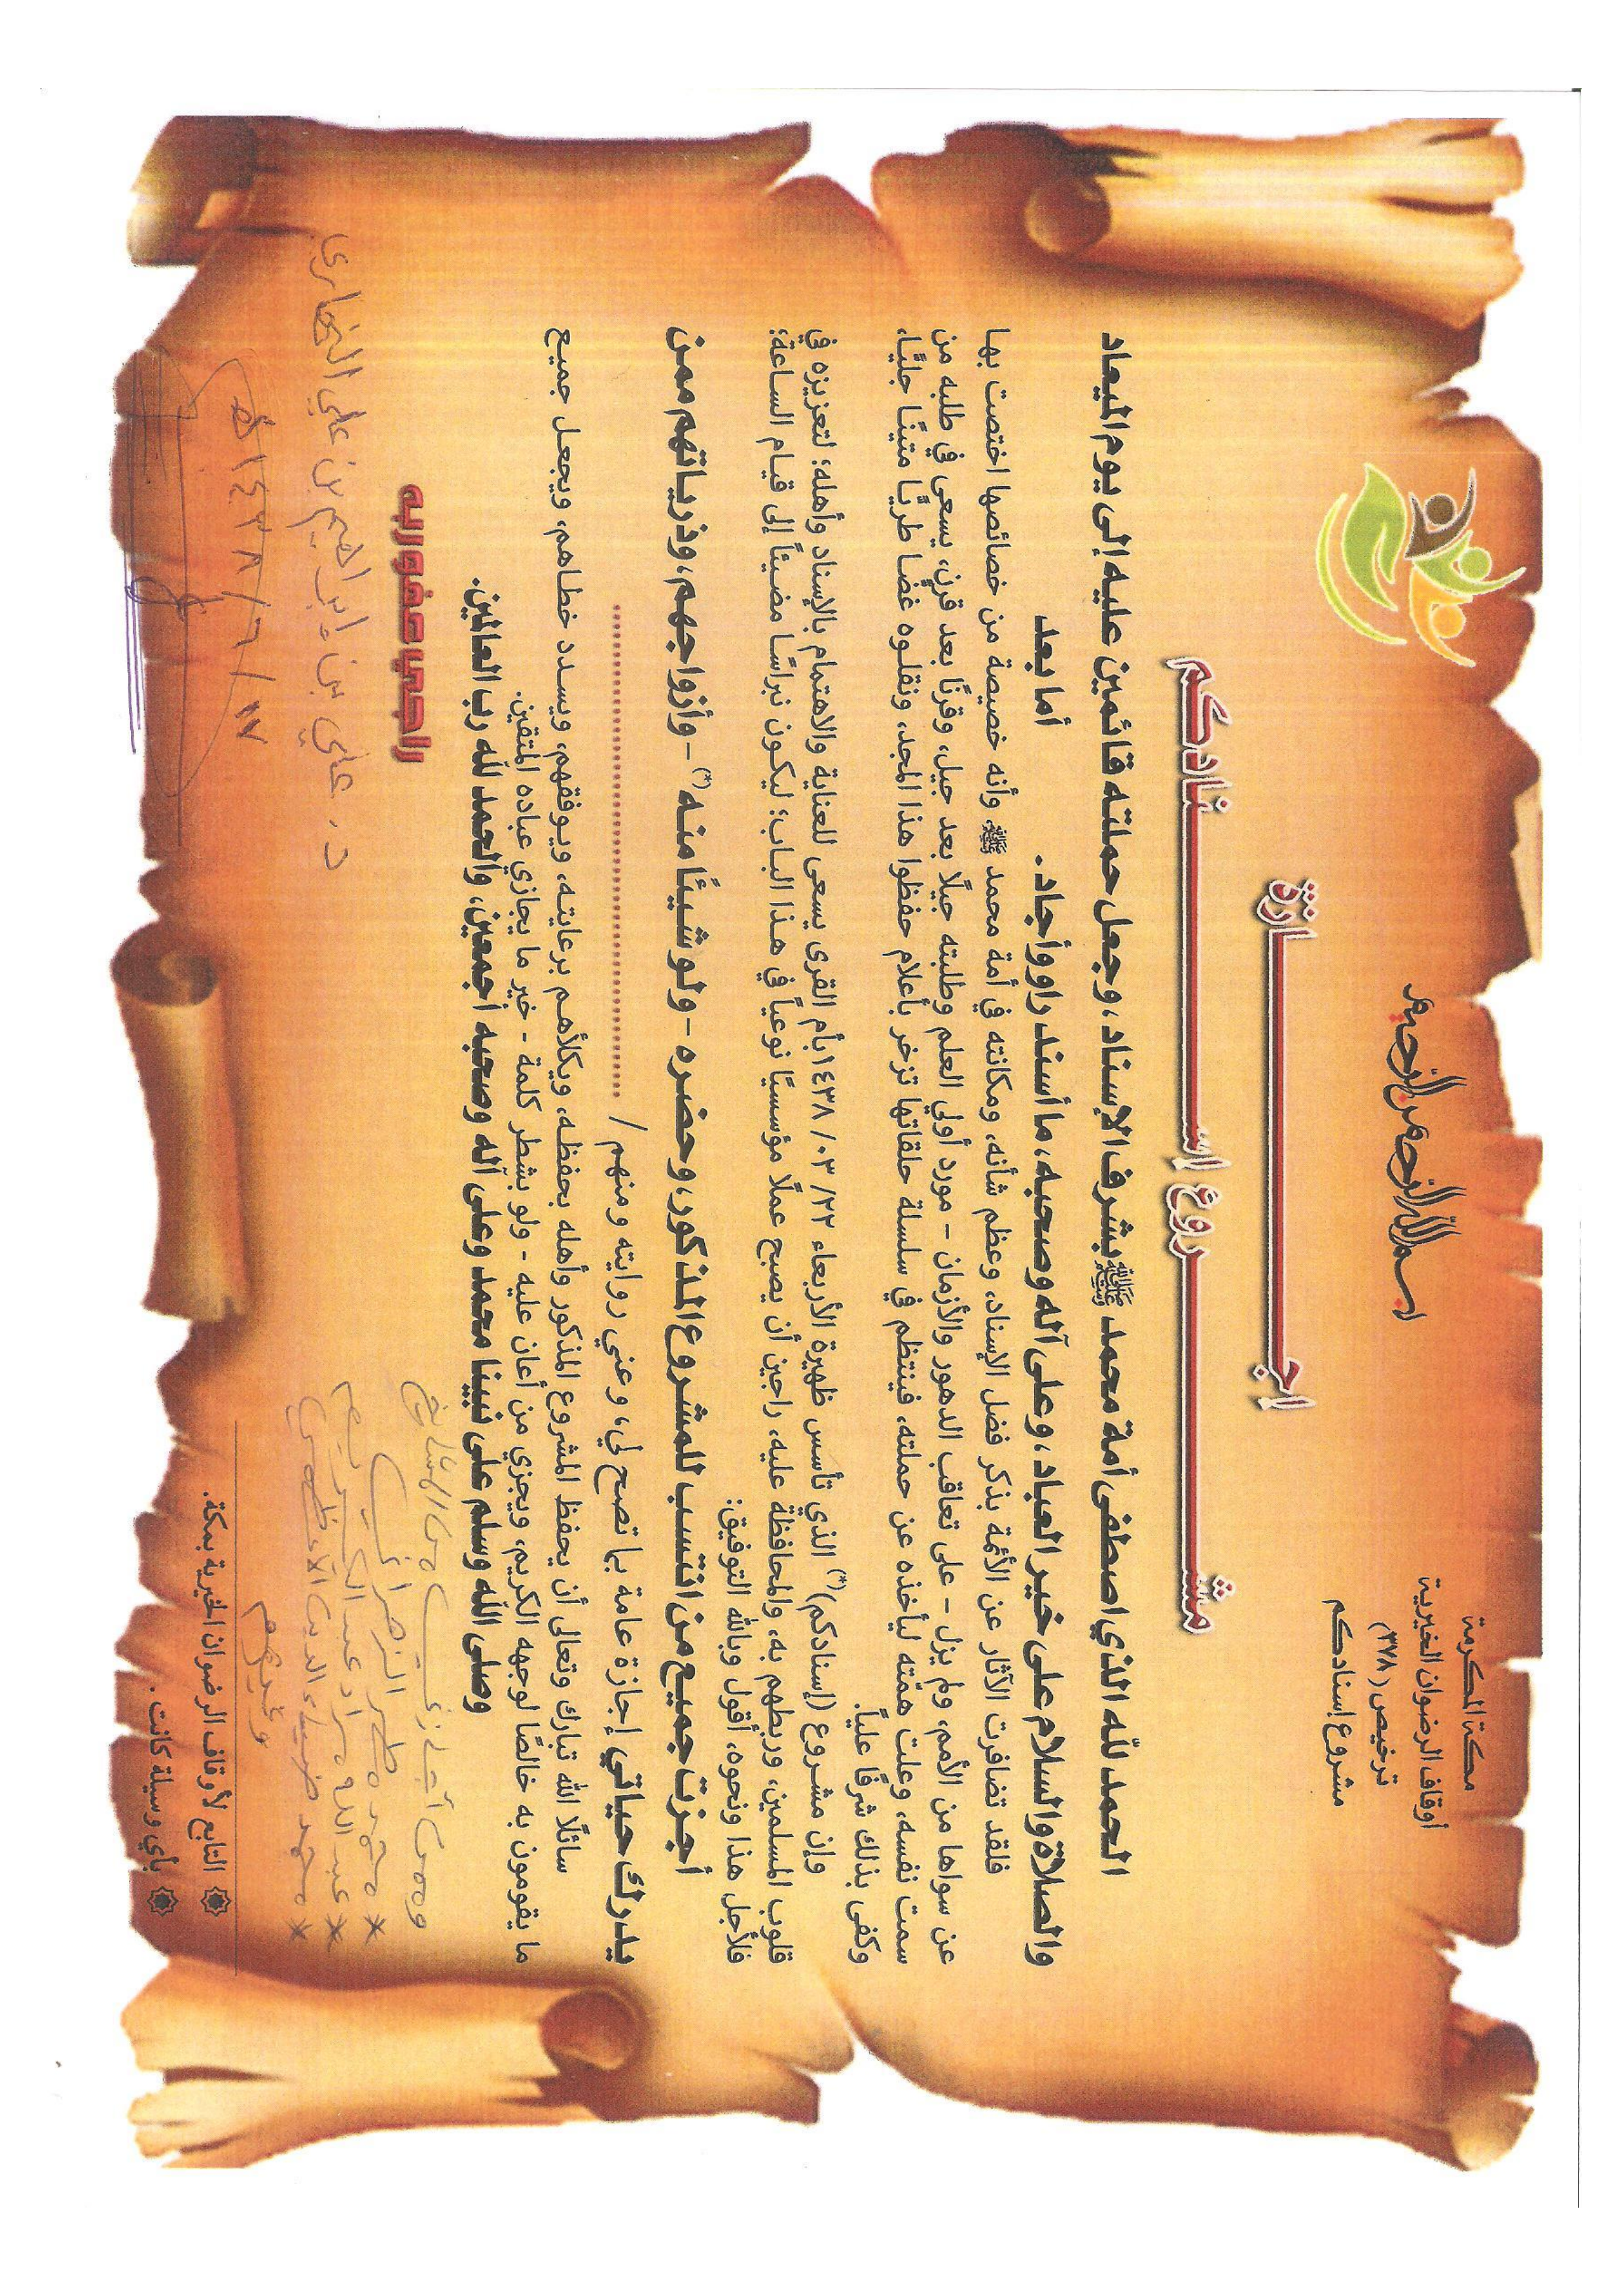 مكة المكرمة
أوقاف الرضوان الخيرية
ترخيص (٣٧٨)
مشروع إسنادكم
بسم الله الرحمن الرحيم
إجـــازة
مشـــروع إســـنادكم
الحمد لله الذي اصطفى أمة محمد ﷺ بشرف الإسناد، وجعل حملته قائمين عليه إلى يوم الميعاد
والصلاة والسلام على خير العباد، وعلى آله وصحبه، ما أسند راو وأجاد.
أما بعد
فلقد تضافرت الآثار عن الأئمة بذكر فضل الإسناد، وعظم شأنه، ومكانته في أمة محمد ﷺ، وأنه خصيصة من خصائصها اختصت بها
عن سواها من الأمم، ولم يزل - على تعاقب الدهور والأزمان - مورد أولي العلم وطلبته جيلًا بعد جيل، وقرنًا بعد قرن، يسعى في طلبه من
سمت نفسه، وعلت همّته ليأخذه عن حملته، فينتظم في سلسلة حلقاتها تزخر بأعلام حفظوا هذا المجد، ونقلوه غضا طريًا متينًا جليًا،
وكفى بذلك شرفًا عليًا.
وإن مشروع (إسنادكم)(*) الذي تأسس ظهيرة الأربعاء ٢٢/ ٠٣/ ١٤٣٨ بأم القرى يسعى للعناية والاهتمام بالإسناد وأهله؛ لتعزيزه في
قلوب المسلمين، وربطهم به، والمحافظة عليه، راجين أن يصبح عملًا مؤسسيًا نوعياً في هذا الباب؛ ليكون نبراسًا مضيئاً إلى قيام الساعة؛
فلأجل هذا ونحوه، أقول وبالله التوفيق:
أجزت جميع من انتسب للمشروع المذكور، وحضره - ولو شيئًا منه(*) - وأزواجهم، وذرياتهم ممن
يدرك حياتي إجازة عامة بما تصح لي، وعني روايته ومنهم / ..........................................
سائلًا الله تبارك وتعالى أن يحفظ المشروع المذكور وأهله بحفظه، ويكلأهم برعايته، ويوفقهم، ويسدد خطاهم، ويجعل جميع
ما يقومون به خالصًا لوجهه الكريم، ويجزي من أعان عليه - ولو بشطر كلمة - خير ما يجازي عباده المتقين.
وصلى الله وسلم على نبينا محمد وعلى آله وصحبه أجمعين، والحمد لله رب العالمين.
راجي عفو ربه
د. علي بن إبراهيم بن علي
١٧/ ٦/ ١٤٣٨هـ
* محمد
* عبد الله
* محمد ضياء الدين الأعظمي
وغيرهم
التابع لأوقاف الرضوان الخيرية بمكة.
بأي وسيلة كانت.